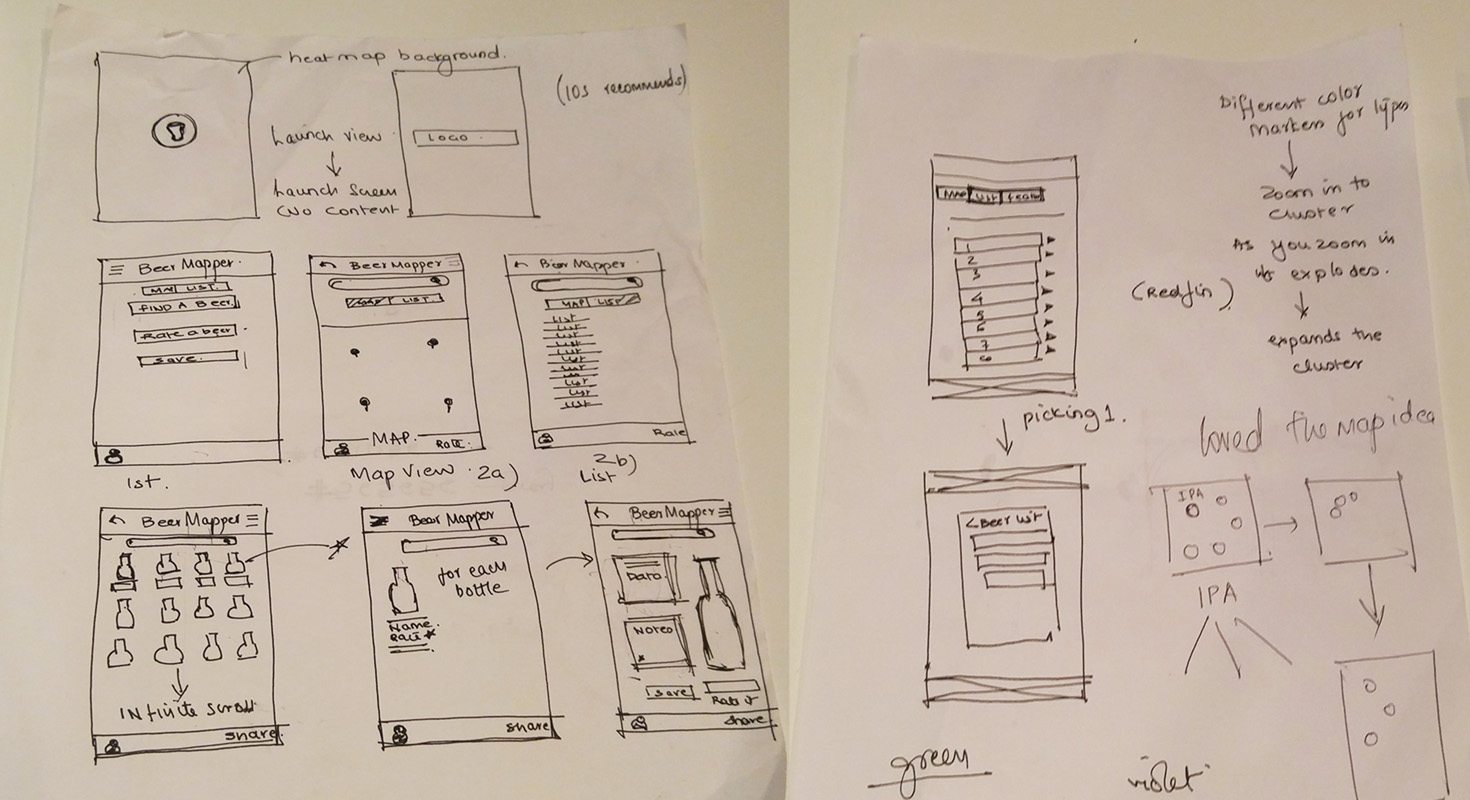 heatmap background.
(IOS recommends)
Launch view
LOGO
Launch Screen
(No content
Beer Mapper.
MAP LIST.
FIND A Beer
Rate a beer
Save.
1st.
Beer Mapper
LIST.
MAP.
Rate.
Map View 2a)
Beer Mapper
MAP LIST
List
List
List
List
List
List
List
List
List
Rate
2b)
List
Beer Mapper
INfinite scroll
share
Beer Mapper
for each
bottle
Name.
Rate
share
Beer Mapper
Data.
Notes
save
Rate it
share
Different color
markers for types
Zoom in to
cluster
As you zoom in
it explodes.
(Redfin)
expands the
cluster
MAP LIST
1
2
3
4
5
6
7
8
picking 1.
< Beer List
loved the map idea
IPA
IPA
green
violet